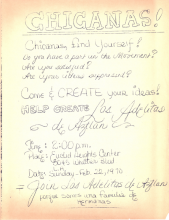 CHICANAS!
Chicanas, find Yourself!
Do you have a part in the Movement?
Are you satisfied?
Are your ideas suppressed?
Come & CREATE your ideas!
HELP CREATE Las Adelitas
de Aztlan
Time: 2:00 p.m.
Place: Euclid Heights Center
Date: Sunday, Feb. 22, 1970
Join Las Adelitas de Aztlan
porque somos una familia de
hermanas